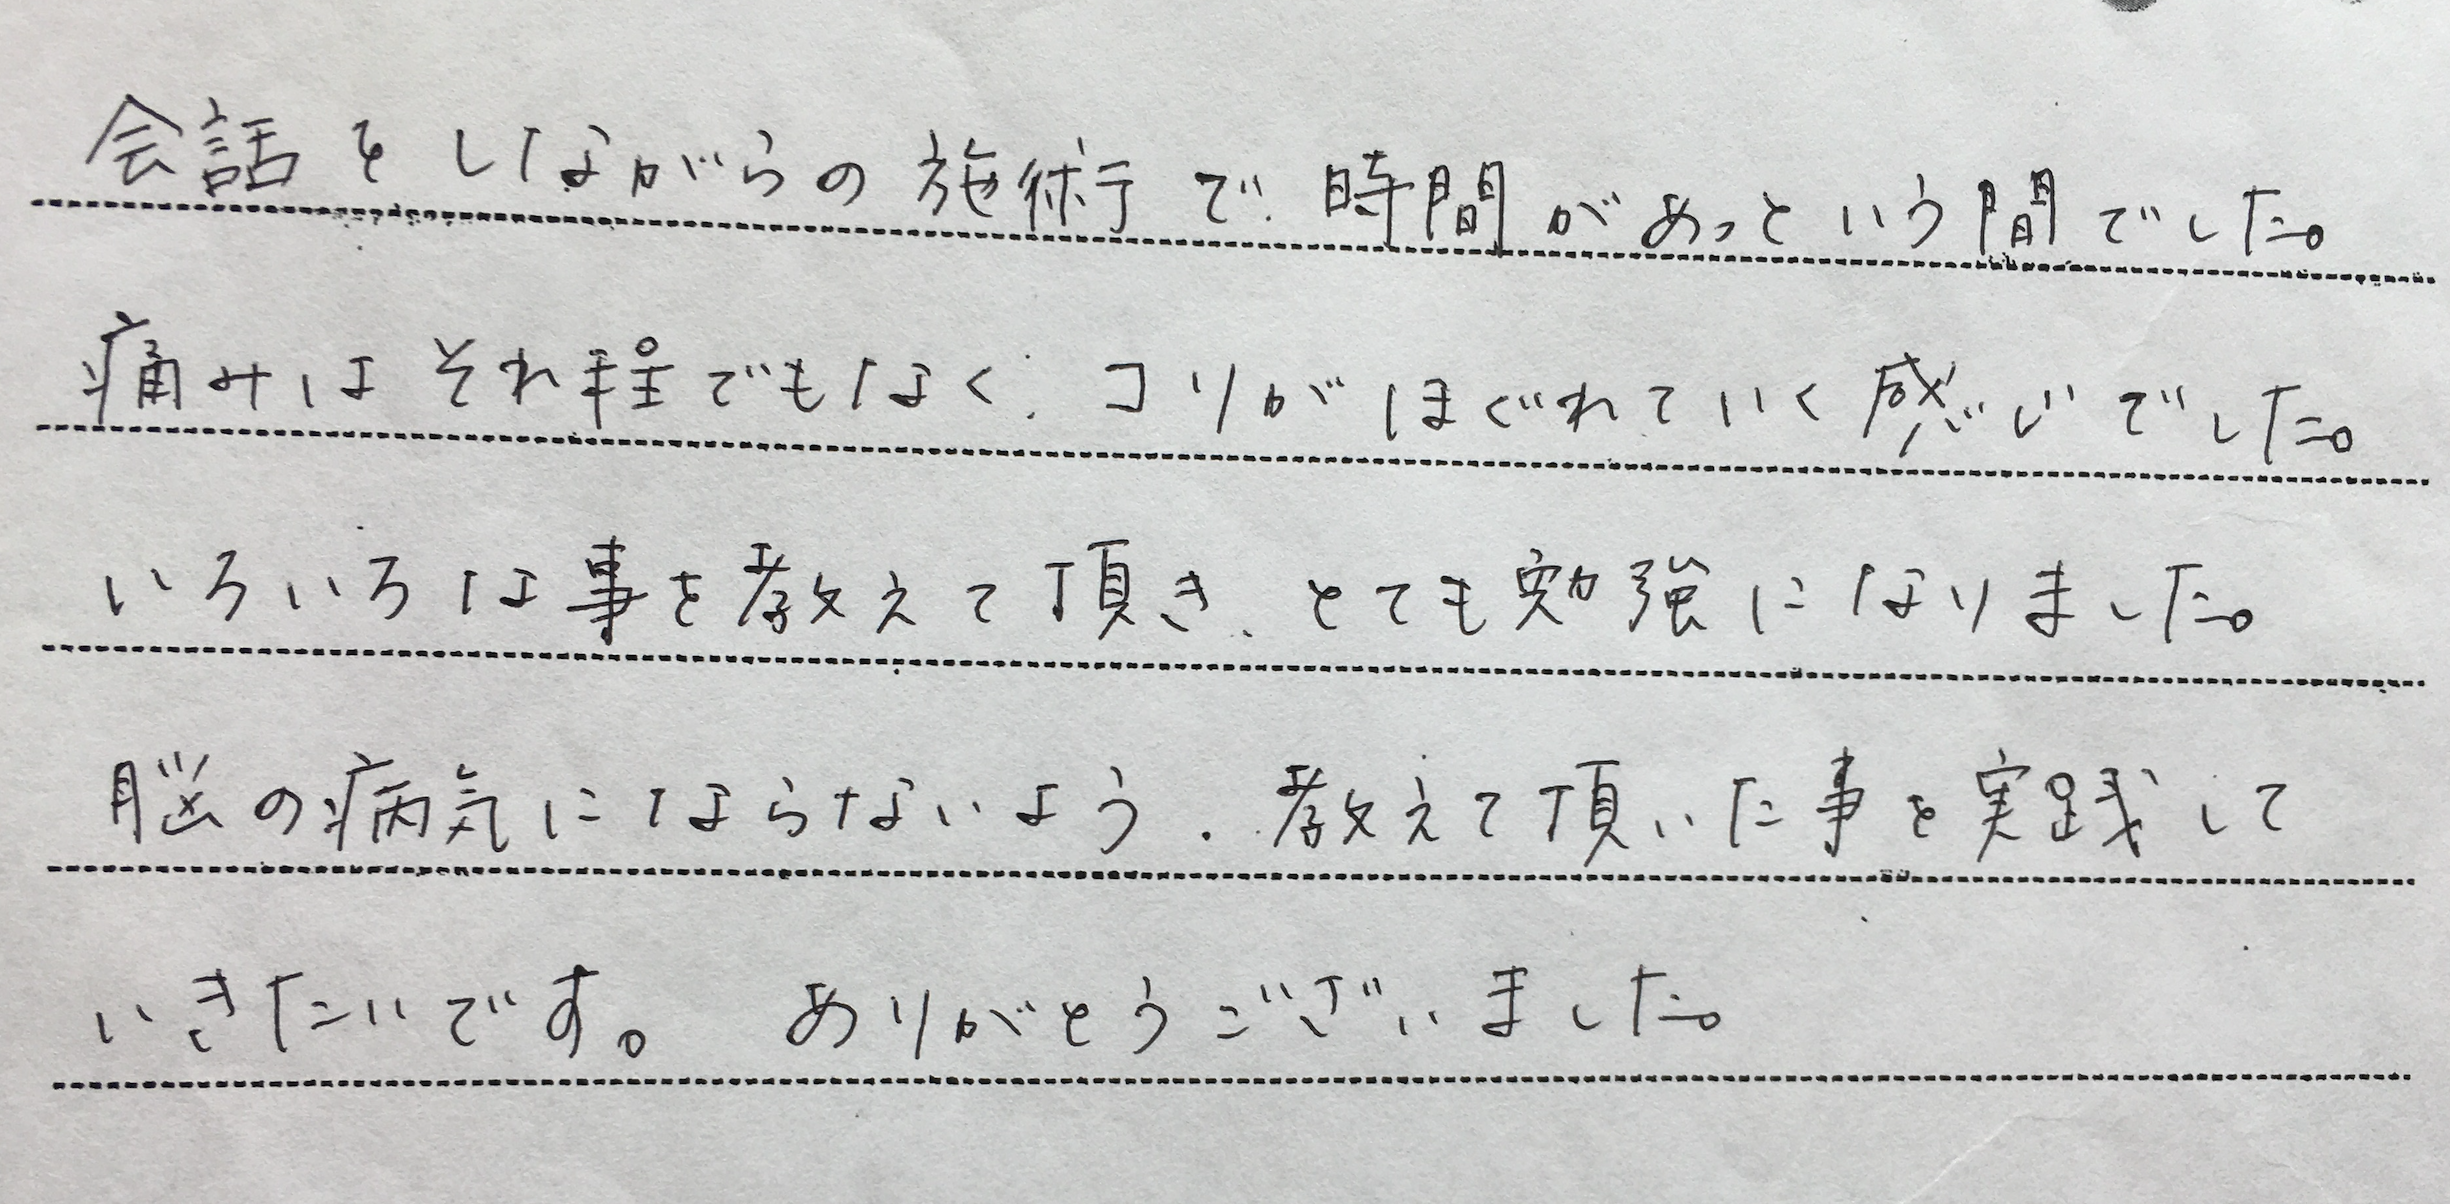 会話をしながらの施術で、時間があっという間でした。
痛みはそれ程でもなく、コリがほぐれていく感じでした。
いろいろな事を教えて頂き、とても勉強になりました。
脳の病気にならないよう、教えて頂いた事を実践して
いきたいです。 ありがとうございました。